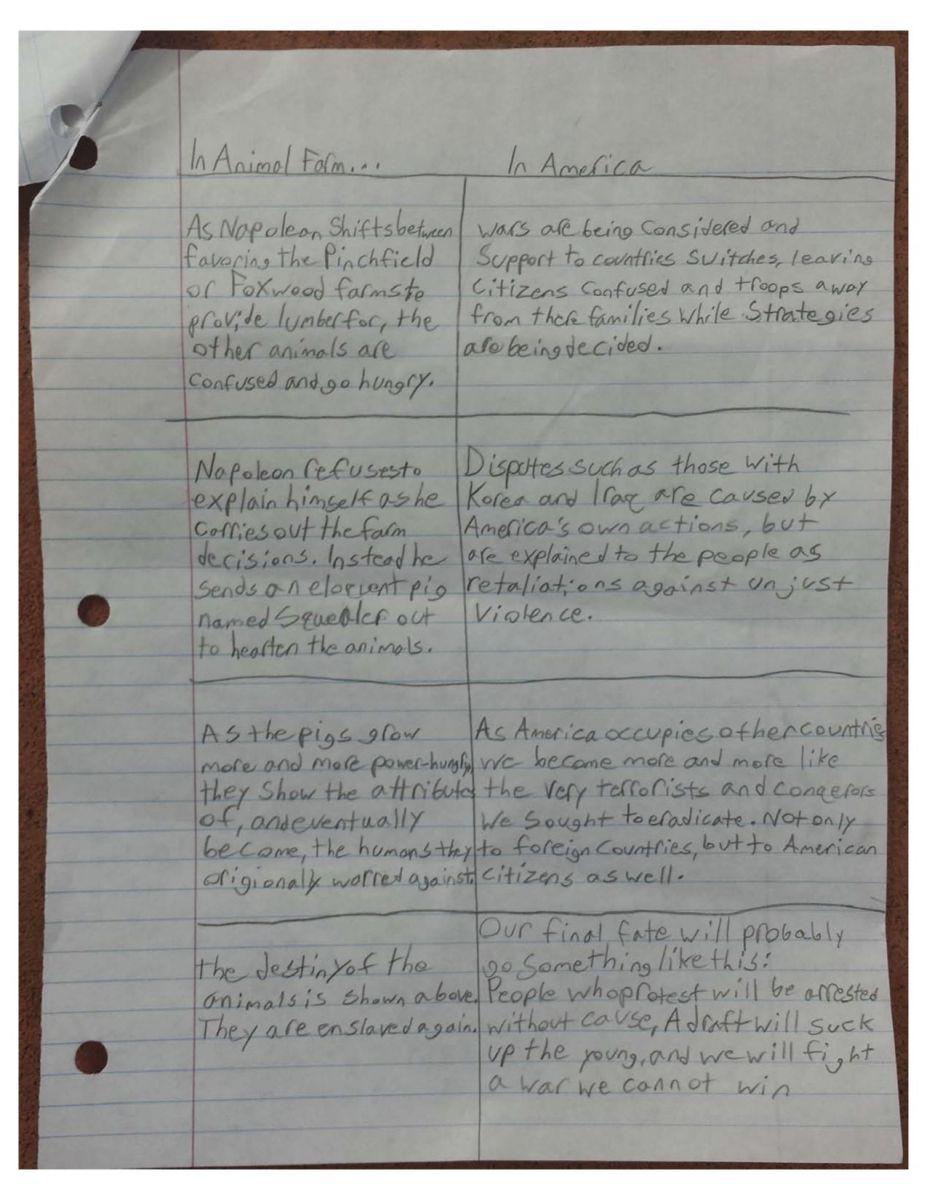 In Animal Farm...
In America
As Napolean Shifts between
favoring the Pinchfield
or Foxwood farms to
provide lumber for, the
other animals are
confused and go hungry.
wars are being considered and
Support to countries switches, leaving
citizens confused and troops away
from there families while strategies
are being decided.
Napoleon refuses to
explain himself as he
carries out the farm
decisions. Instead he
sends an eloquent pig
named Squealer out
to hearten the animals.
Disputes such as those with
Korea and Iraq are caused by
America's own actions, but
are explained to the people as
retaliations against unjust
violence.
As the pigs grow
more and more power-hungry,
they show the attributes
of, and eventually
become, the humans they
origionally worred against.
As America occupies other countries
we become more and more like
the very terrorists and conqerors
we sought to eradicate. Not only
to foreign countries, but to American
citizens as well.
the destiny of the
animals is shown above.
They are enslaved again.
Our final fate will probably
go something like this:
People who protest will be arrested
without cause, A draft will suck
up the young, and we will fight
a war we cannot win